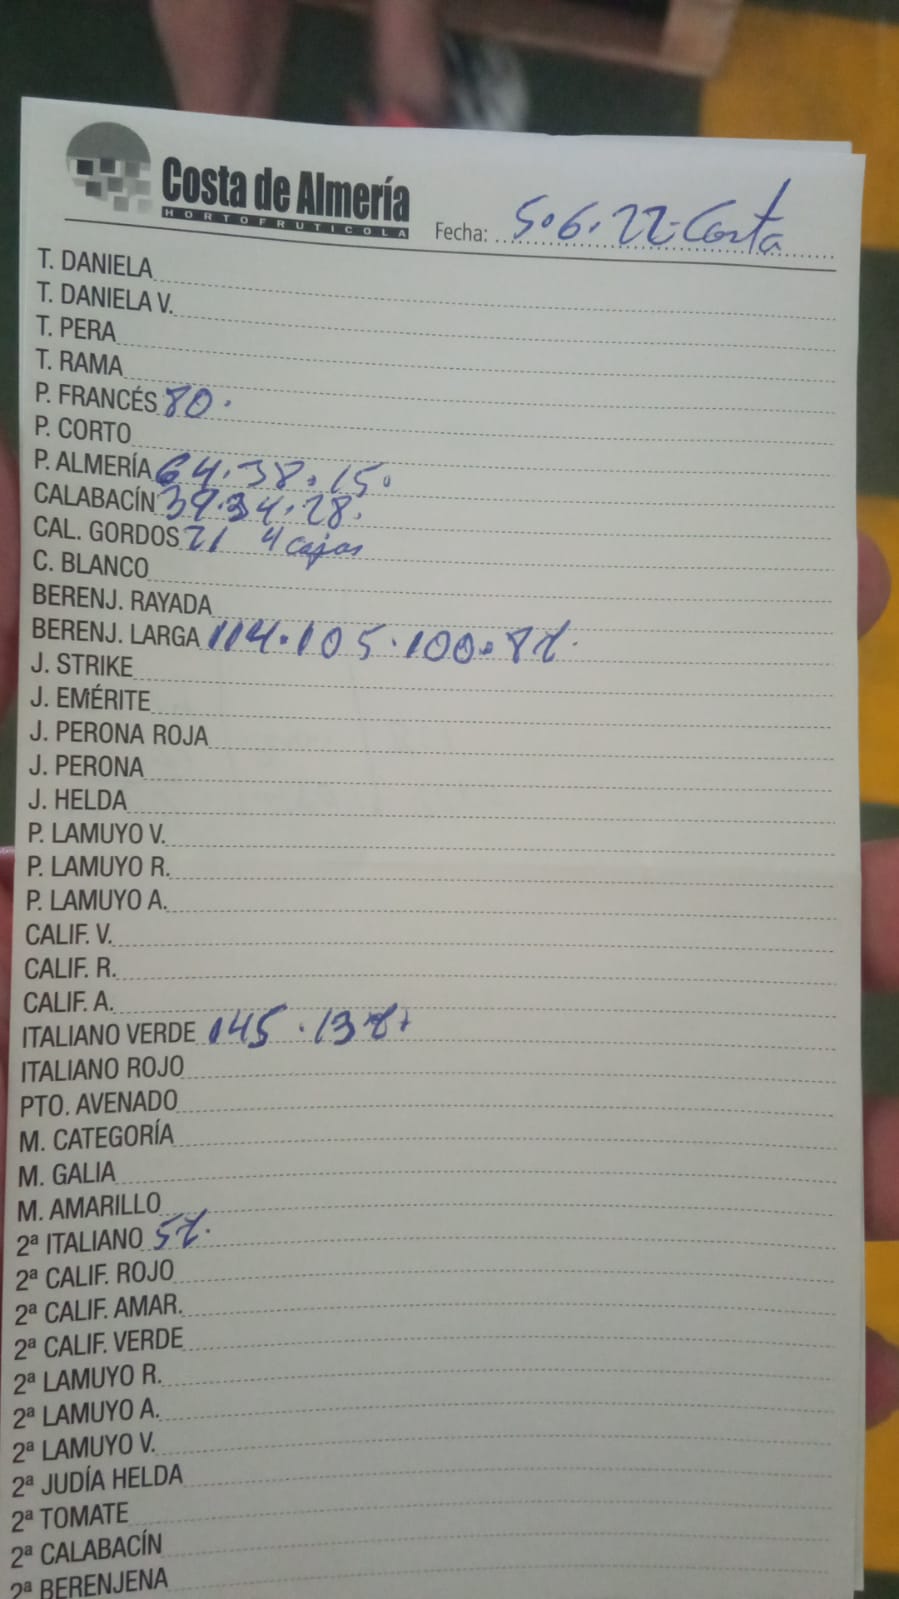 Costa de Almería
HORTOFRUTICOLA
Fecha: 5.6.22-Costa
T. DANIELA
T. DANIELA V.
T. PERA
T. RAMA
P. FRANCÉS 80.
P. CORTO
P. ALMERÍA 64.38.15.
CALABACÍN 39.34.28.
CAL. GORDOS 21 4 cajas
C. BLANCO
BERENJ. RAYADA
BERENJ. LARGA 114.105.100.
J. STRIKE
J. EMÉRITE
J. PERONA ROJA
J. PERONA
J. HELDA
P. LAMUYO V.
P. LAMUYO R.
P. LAMUYO A.
CALIF. V.
CALIF. R.
CALIF. A.
ITALIANO VERDE 145.
ITALIANO ROJO
PTO. AVENADO
M. CATEGORÍA
M. GALIA
M. AMARILLO
2ª ITALIANO
2ª CALIF. ROJO
2ª CALIF. AMAR.
2ª CALIF. VERDE
2ª LAMUYO R.
2ª LAMUYO A.
2ª LAMUYO V.
2ª JUDÍA HELDA
2ª TOMATE
2ª CALABACÍN
2ª BERENJENA